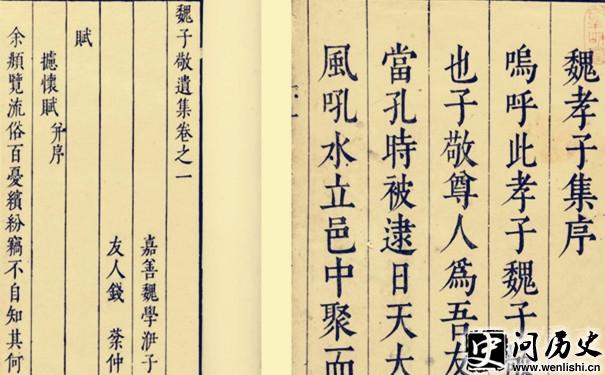 魏孝子集序
嗚呼此孝子魏子
也子敬尊人爲吾友
當孔時被逮日天大
風吼水立邑中聚而
魏子敬遺集卷之一
嘉善魏學洢子
友人錢 棻仲
賦
攄懷賦 并序
余頫覽流俗百憂繽紛竊不自知其何
问历史
www.wenlishi.cn